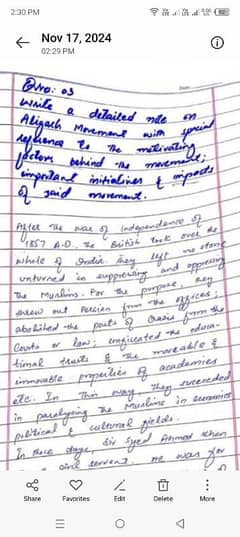 2:30 PM
Nov 17, 2024
02:29 PM
Q.no: 03
write a detailed note on
Aligarh Movement with special
reference to the motivating
factors behind the movement;
important initiatives & impacts
of said movement.
After the war of Independence of
1857 A.D., the British took over the
whole of India they left no stone
unturned in suppressing and oppressing
the Muslims. For the purpose, they
threw out Persian from the offices;
abolished the posts of Qazis from the
Courts of law; the educa-
tional trusts & the moveable &
immovable properties of academies
etc. In this way they succeeded
in paralysing the Muslims in economics
political & cultural fields.
In those days, Sir Syed Ahmad Khan
civil servant. He was for
Share
Favorites
Edit
Delete
More